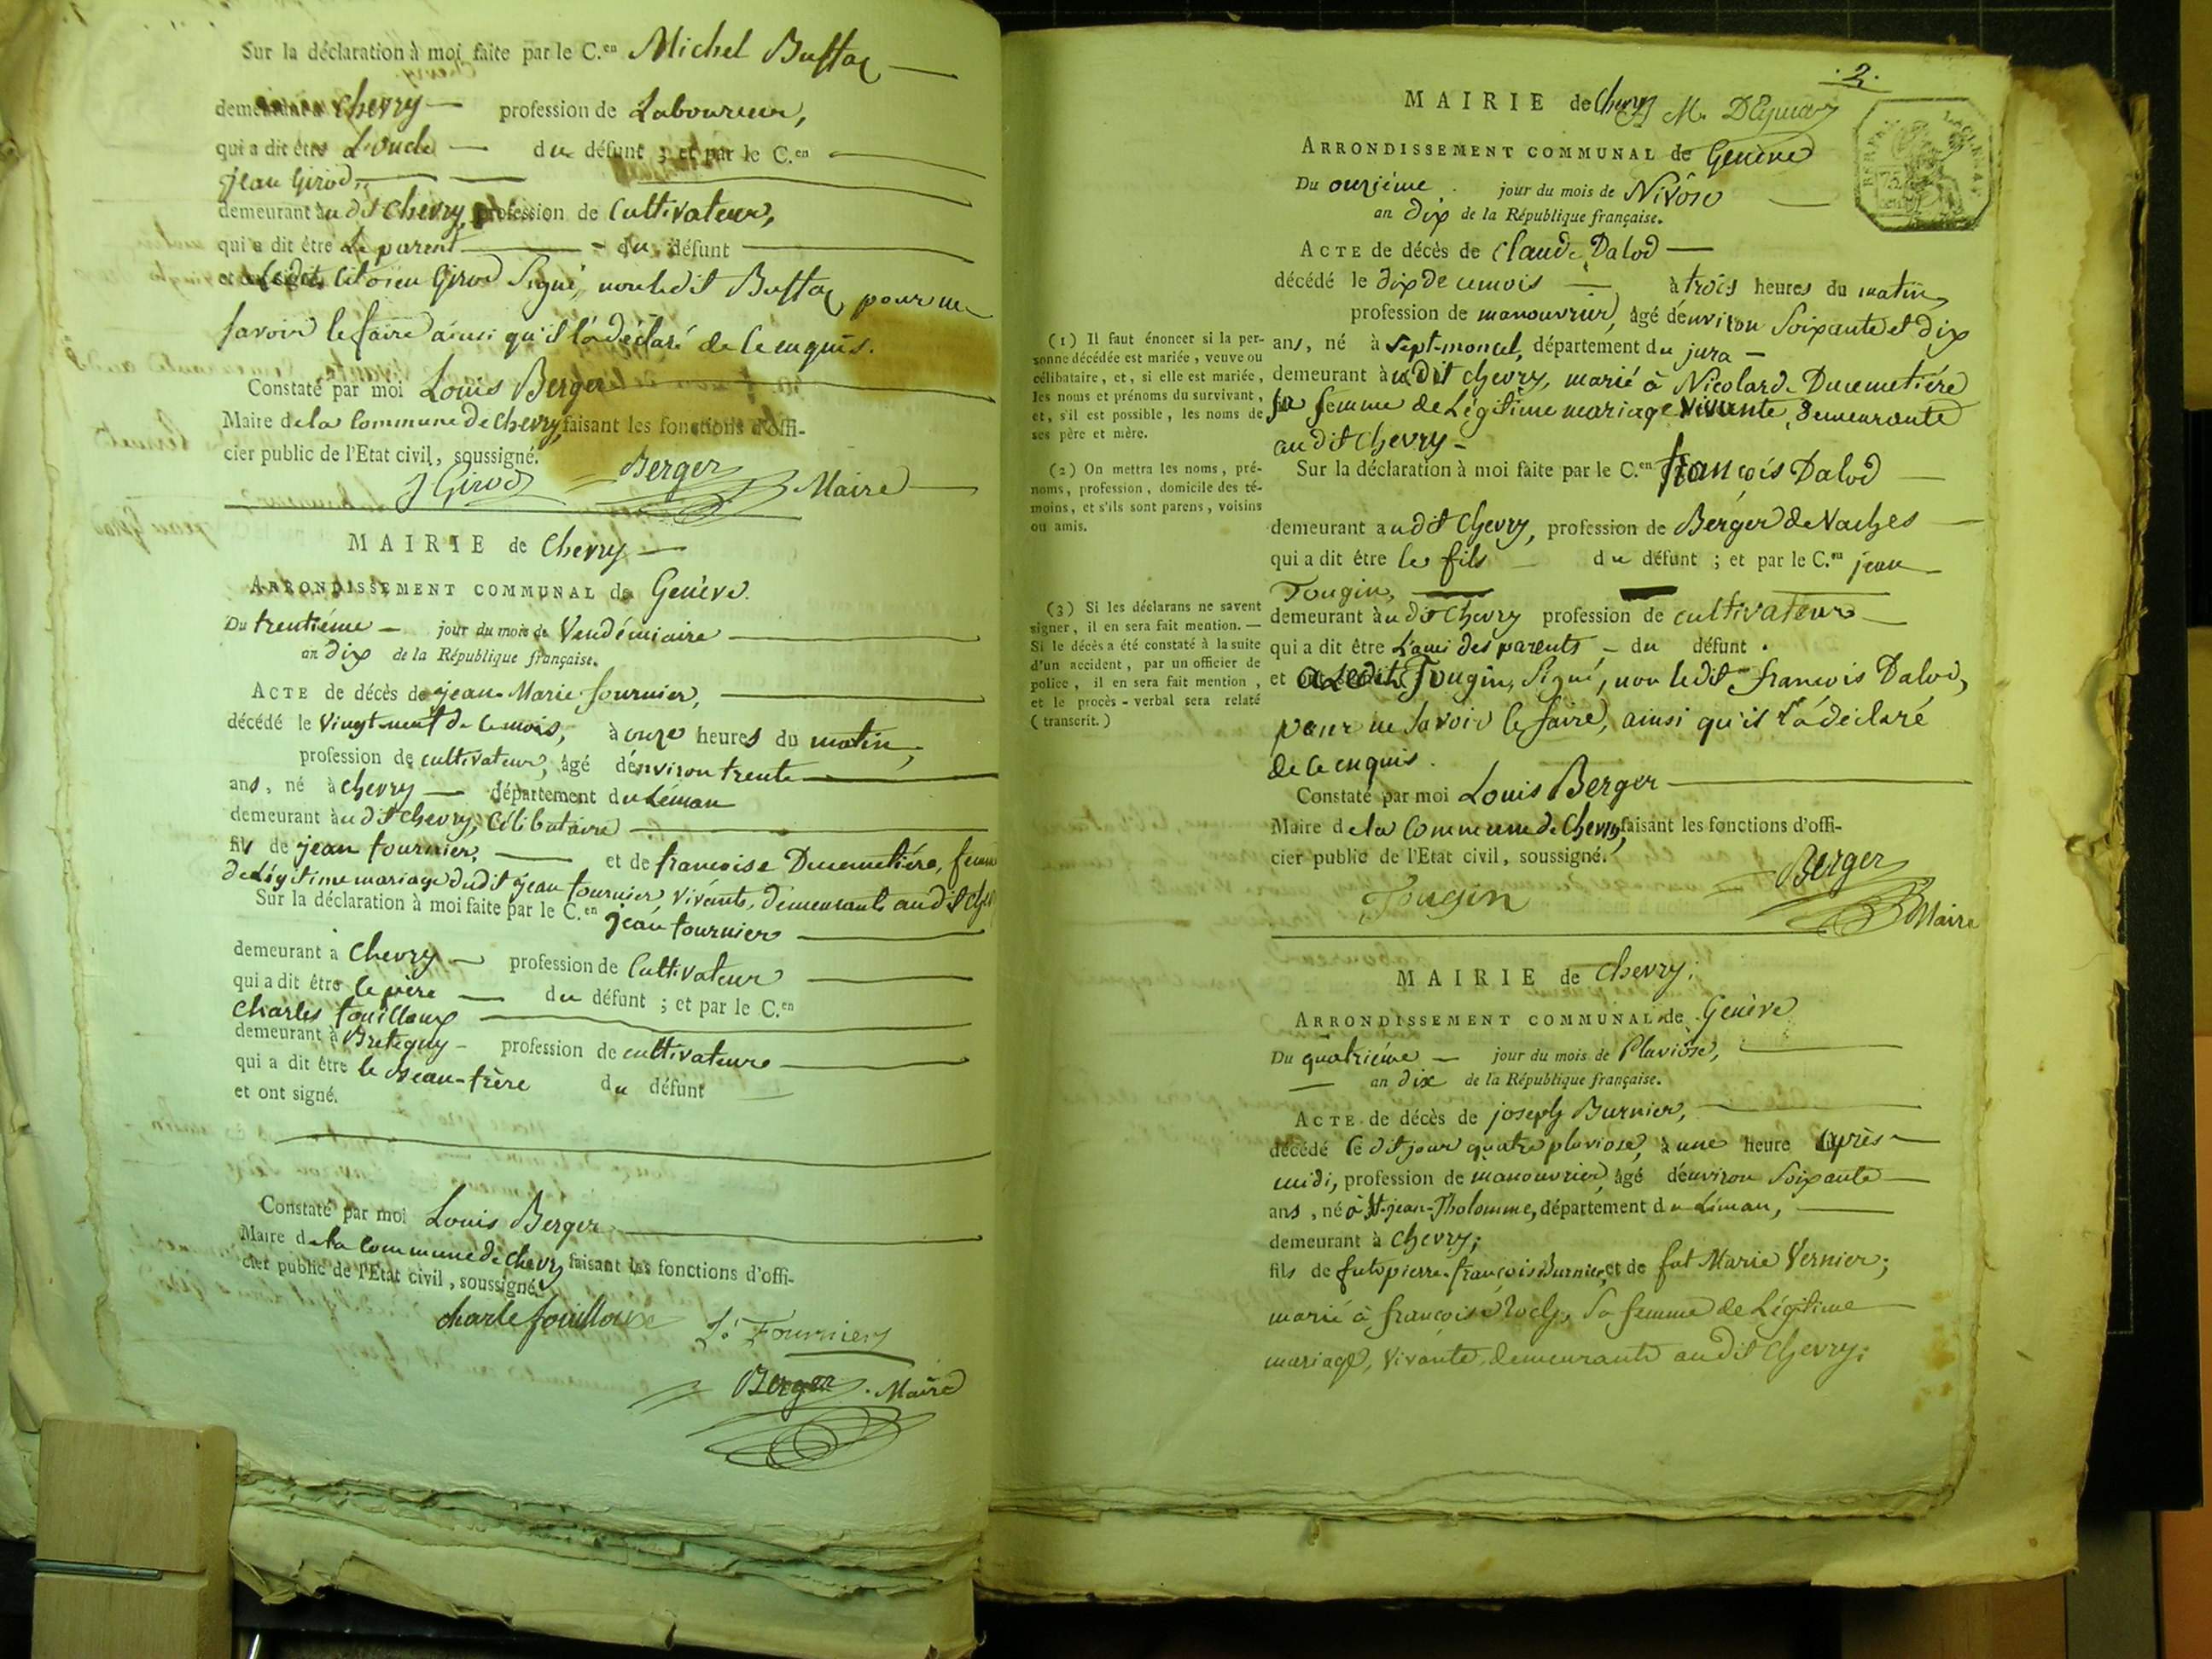 Sur la déclaration à moi faite par le C.en Michel Buffaz
demeurant à Chevry profession de Laboureur,
qui a dit être L'oncle du défunt ; et par le C.en
jean Girod,
demeurant au dit Chevry, profession de Cultivateur,
qui a dit être Le parent du défunt
et Ledit Citoïen Girod Signé, non ledit Buffaz pour ne
Savoir le faire ainsi qu'il l'a déclaré de ce enquis.
Constaté par moi Louis Berger
Maire de la Commune de Chevry, faisant les fonctions d'offi-
cier public de l'Etat civil, soussigné.
J Girod Berger Maire
MAIRIE de Chevry
ARRONDISSEMENT COMMUNAL de Genève.
Du trentiéme jour du mois de Vendémiaire
an dix de la République française.
ACTE de décès de jean-Marie fournier,
décédé le Vingt neuf de ce mois, à onze heures du matin,
profession de cultivateur, âgé d'environ trente
ans, né à chevry département du Léman
demeurant au dit chevry, Célibataire
fils de jean fournier, et de francoise Ducemetiére, femme
de Légitime mariage dudit jean fournier, Vivante, demeurante audit
Sur la déclaration à moi faite par le C.en jean fournier
demeurant à Chevry profession de Cultivateur
qui a dit être le père du défunt ; et par le C.en
Charles fouilloux
demeurant à Bretegny profession de cultivateur
qui a dit être le Beau-frère du défunt
et ont signé.
Constaté par moi Louis Berger
Maire de la Commune de Chevry faisant les fonctions d'offi-
cier public de l'Etat civil, soussigné.
charle fouilloux J. Fournier
Berger. Maire
.2.
MAIRIE de Chevry
ARRONDISSEMENT COMMUNAL de Genève
Du onzième jour du mois de Nivôse
an dix de la République française.
ACTE de décès de Claude Dalod
décédé le dix de ce mois à trois heures du matin,
profession de manouvrier, âgé d'environ Soixante et dix
ans, né à Sept-moncel, département du jura
demeurant au dit chevry, marié à Nicolarde Ducemetiére
Sa femme de Légitime mariage Vivante, demeurante
au dit Chevry
Sur la déclaration à moi faite par le C.en françois Dalod
demeurant au dit Chevry, profession de Berger de Vaches
qui a dit être le fils du défunt ; et par le C.en jean
Fougin,
demeurant au dit Chevry profession de cultivateur
qui a dit être L'ami des parents du défunt.
et a Ledit Fougin, Signé, non ledit francois Dalod,
pour ne Savoir le faire, ainsi qu'il l'a déclaré
de ce enquis.
Constaté par moi Louis Berger
Maire de la Commune de Chevry, faisant les fonctions d'offi-
cier public de l'Etat civil, soussigné.
Fougin Berger Maire
(1) Il faut énoncer si la per-
sonne décédée est mariée, veuve ou
célibataire, et, si elle est mariée,
les noms et prénoms du survivant,
et, s'il est possible, les noms de
ses père et mère.
(2) On mettra les noms, pré-
noms, profession, domicile des té-
moins, et s'ils sont parens, voisins
ou amis.
(3) Si les déclarans ne savent
signer, il en sera fait mention. —
Si le décès a été constaté à la suite
d'un accident, par un officier de
police, il en sera fait mention,
et le procès-verbal sera relaté
(transcrit.)
MAIRIE de Chevry.
ARRONDISSEMENT COMMUNAL de Genève
Du quatriéme jour du mois de Pluviôse,
an dix de la République française.
ACTE de décès de joseph Burnier,
décédé le dit jour quatre pluviose, à une heure après
midi, profession de manouvrier, âgé d'environ Soixante
ans, né à St-jean-Tholomme, département du Léman,
demeurant à Chevry;
fils de fut pierre-françois Burnier, et de fut Marie Vernier;
marié à francoise Roch, Sa femme de Légitime
mariage, Vivante, demeurante au dit Chevry;